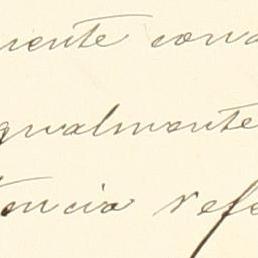 mente cons
gualmente
tencia refe